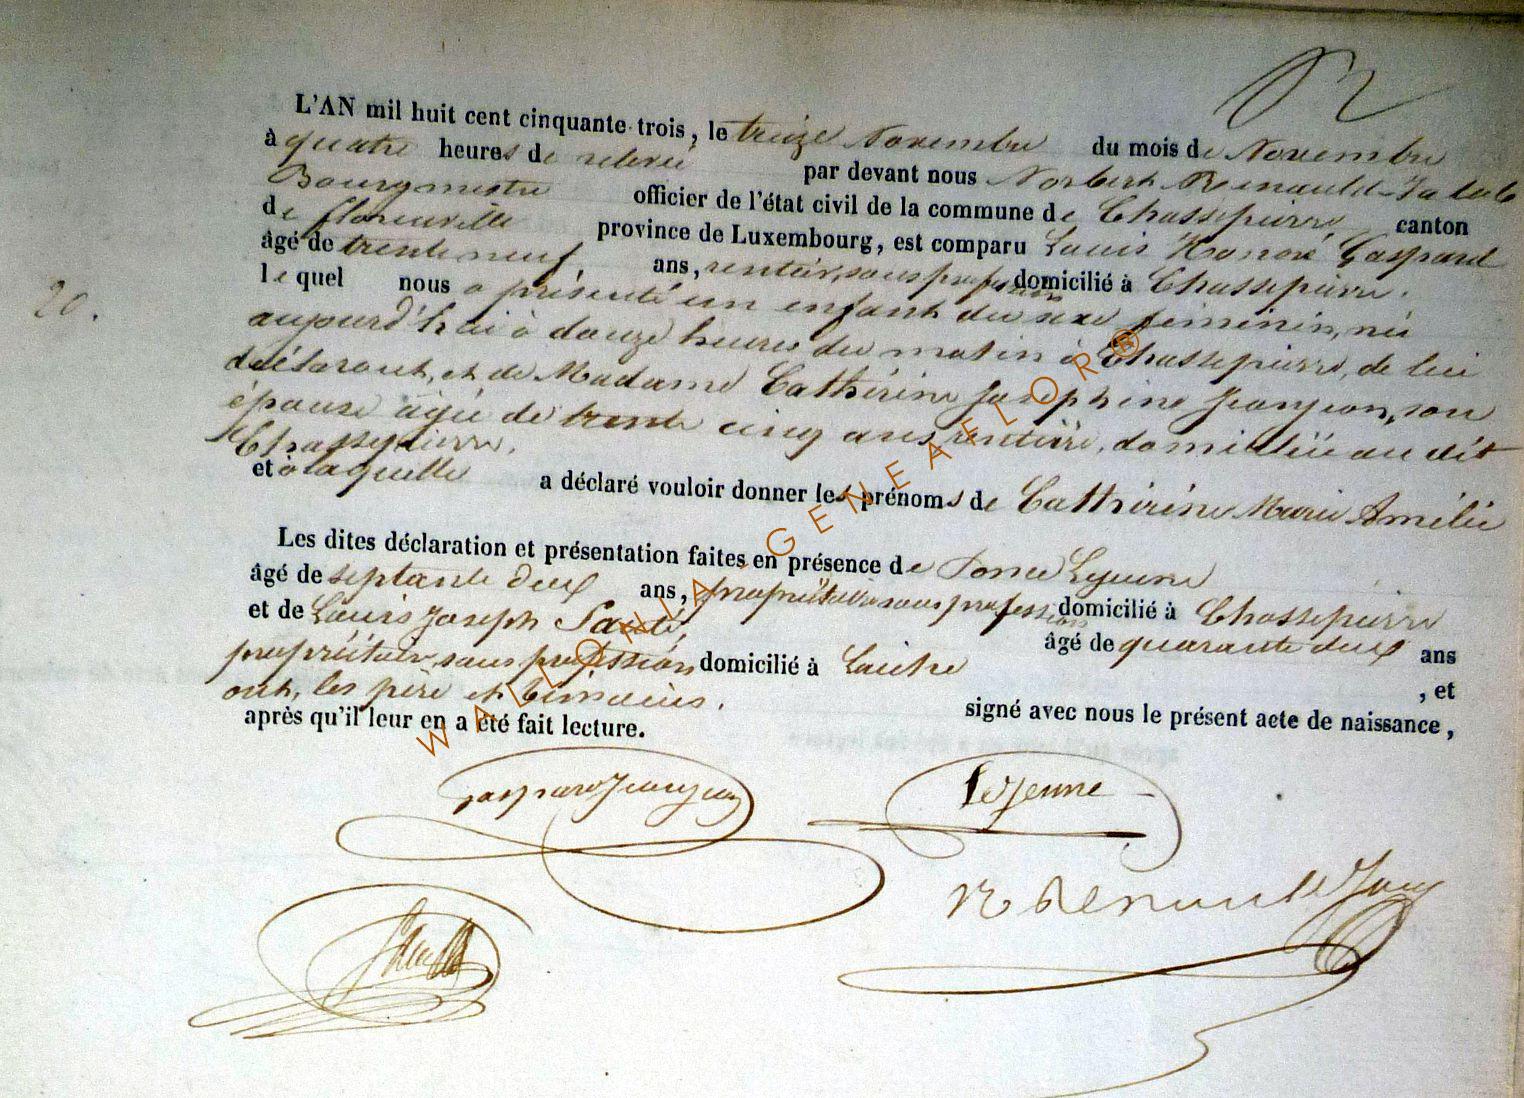 L'AN mil huit cent cinquante-trois, le treize Novembre du mois de Novembre
à quatre heures de relevée par devant nous Norbert Renauld
Bourgmestre officier de l'état civil de la commune de Chassepierre canton
de florenville province de Luxembourg, est comparu Louis Honoré Gaspard
âgé de trente neuf ans, rentier, sans profession domicilié à Chassepierre.
lequel nous a présenté un enfant du sexe féminin, née
aujourd'hui à douze heures du matin à Chassepierre, de lui
déclarant, et de Madame Cathérine Joséphine Jeanjean, son
épouse âgée de trente cinq ans, rentière, domiciliée au dit
Chassepierre.
et à laquelle a déclaré vouloir donner les prénoms de Cathérine Marie Amélie
Les dites déclaration et présentation faites en présence de Lejeune
âgé de septante deux ans, propriétaire sans profession domicilié à Chassepierre
et de Louis Joseph âgé de quarante deux ans
propriétaire, sans profession domicilié à Laiche , et
ont, les père et témoins, signé avec nous le présent acte de naissance,
après qu'il leur en a été fait lecture.
20.
Gaspard Jeanjean
Lejeune
N Renauld
WALLONIA - GENEAFLOR®